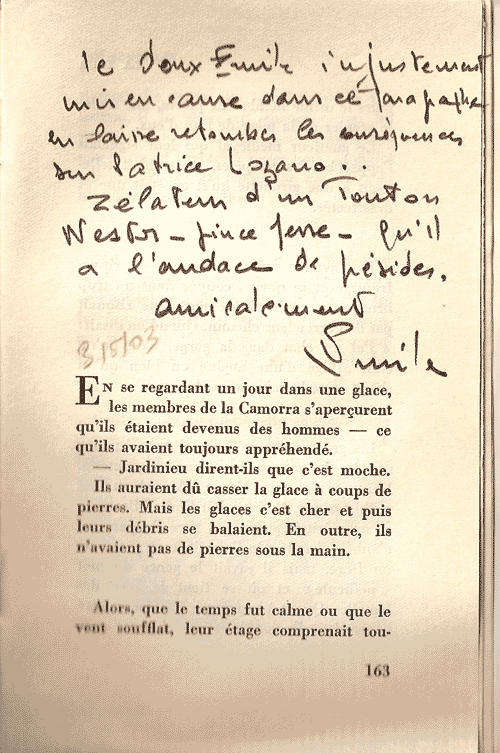 le doux Emile injustement
mis en cause dans ce paragraphe
en laisse retomber les conséquences
sur Patrice Lozano..
Zélateur d'un Tonton
Nestor - pince fesse - qu'il
a l'audace de présider.
amicalement
Emile
3/5/03
EN se regardant un jour dans une glace,
les membres de la Camorra s'aperçurent
qu'ils étaient devenus des hommes — ce
qu'ils avaient toujours appréhendé.
— Jardinieu dirent-ils que c'est moche.
Ils auraient dû casser la glace à coups de
pierres. Mais les glaces c'est cher et puis
leurs débris se balaient. En outre, ils
n'avaient pas de pierres sous la main.
Alors, que le temps fut calme ou que le
vent soufflat, leur étage comprenait tou-
163